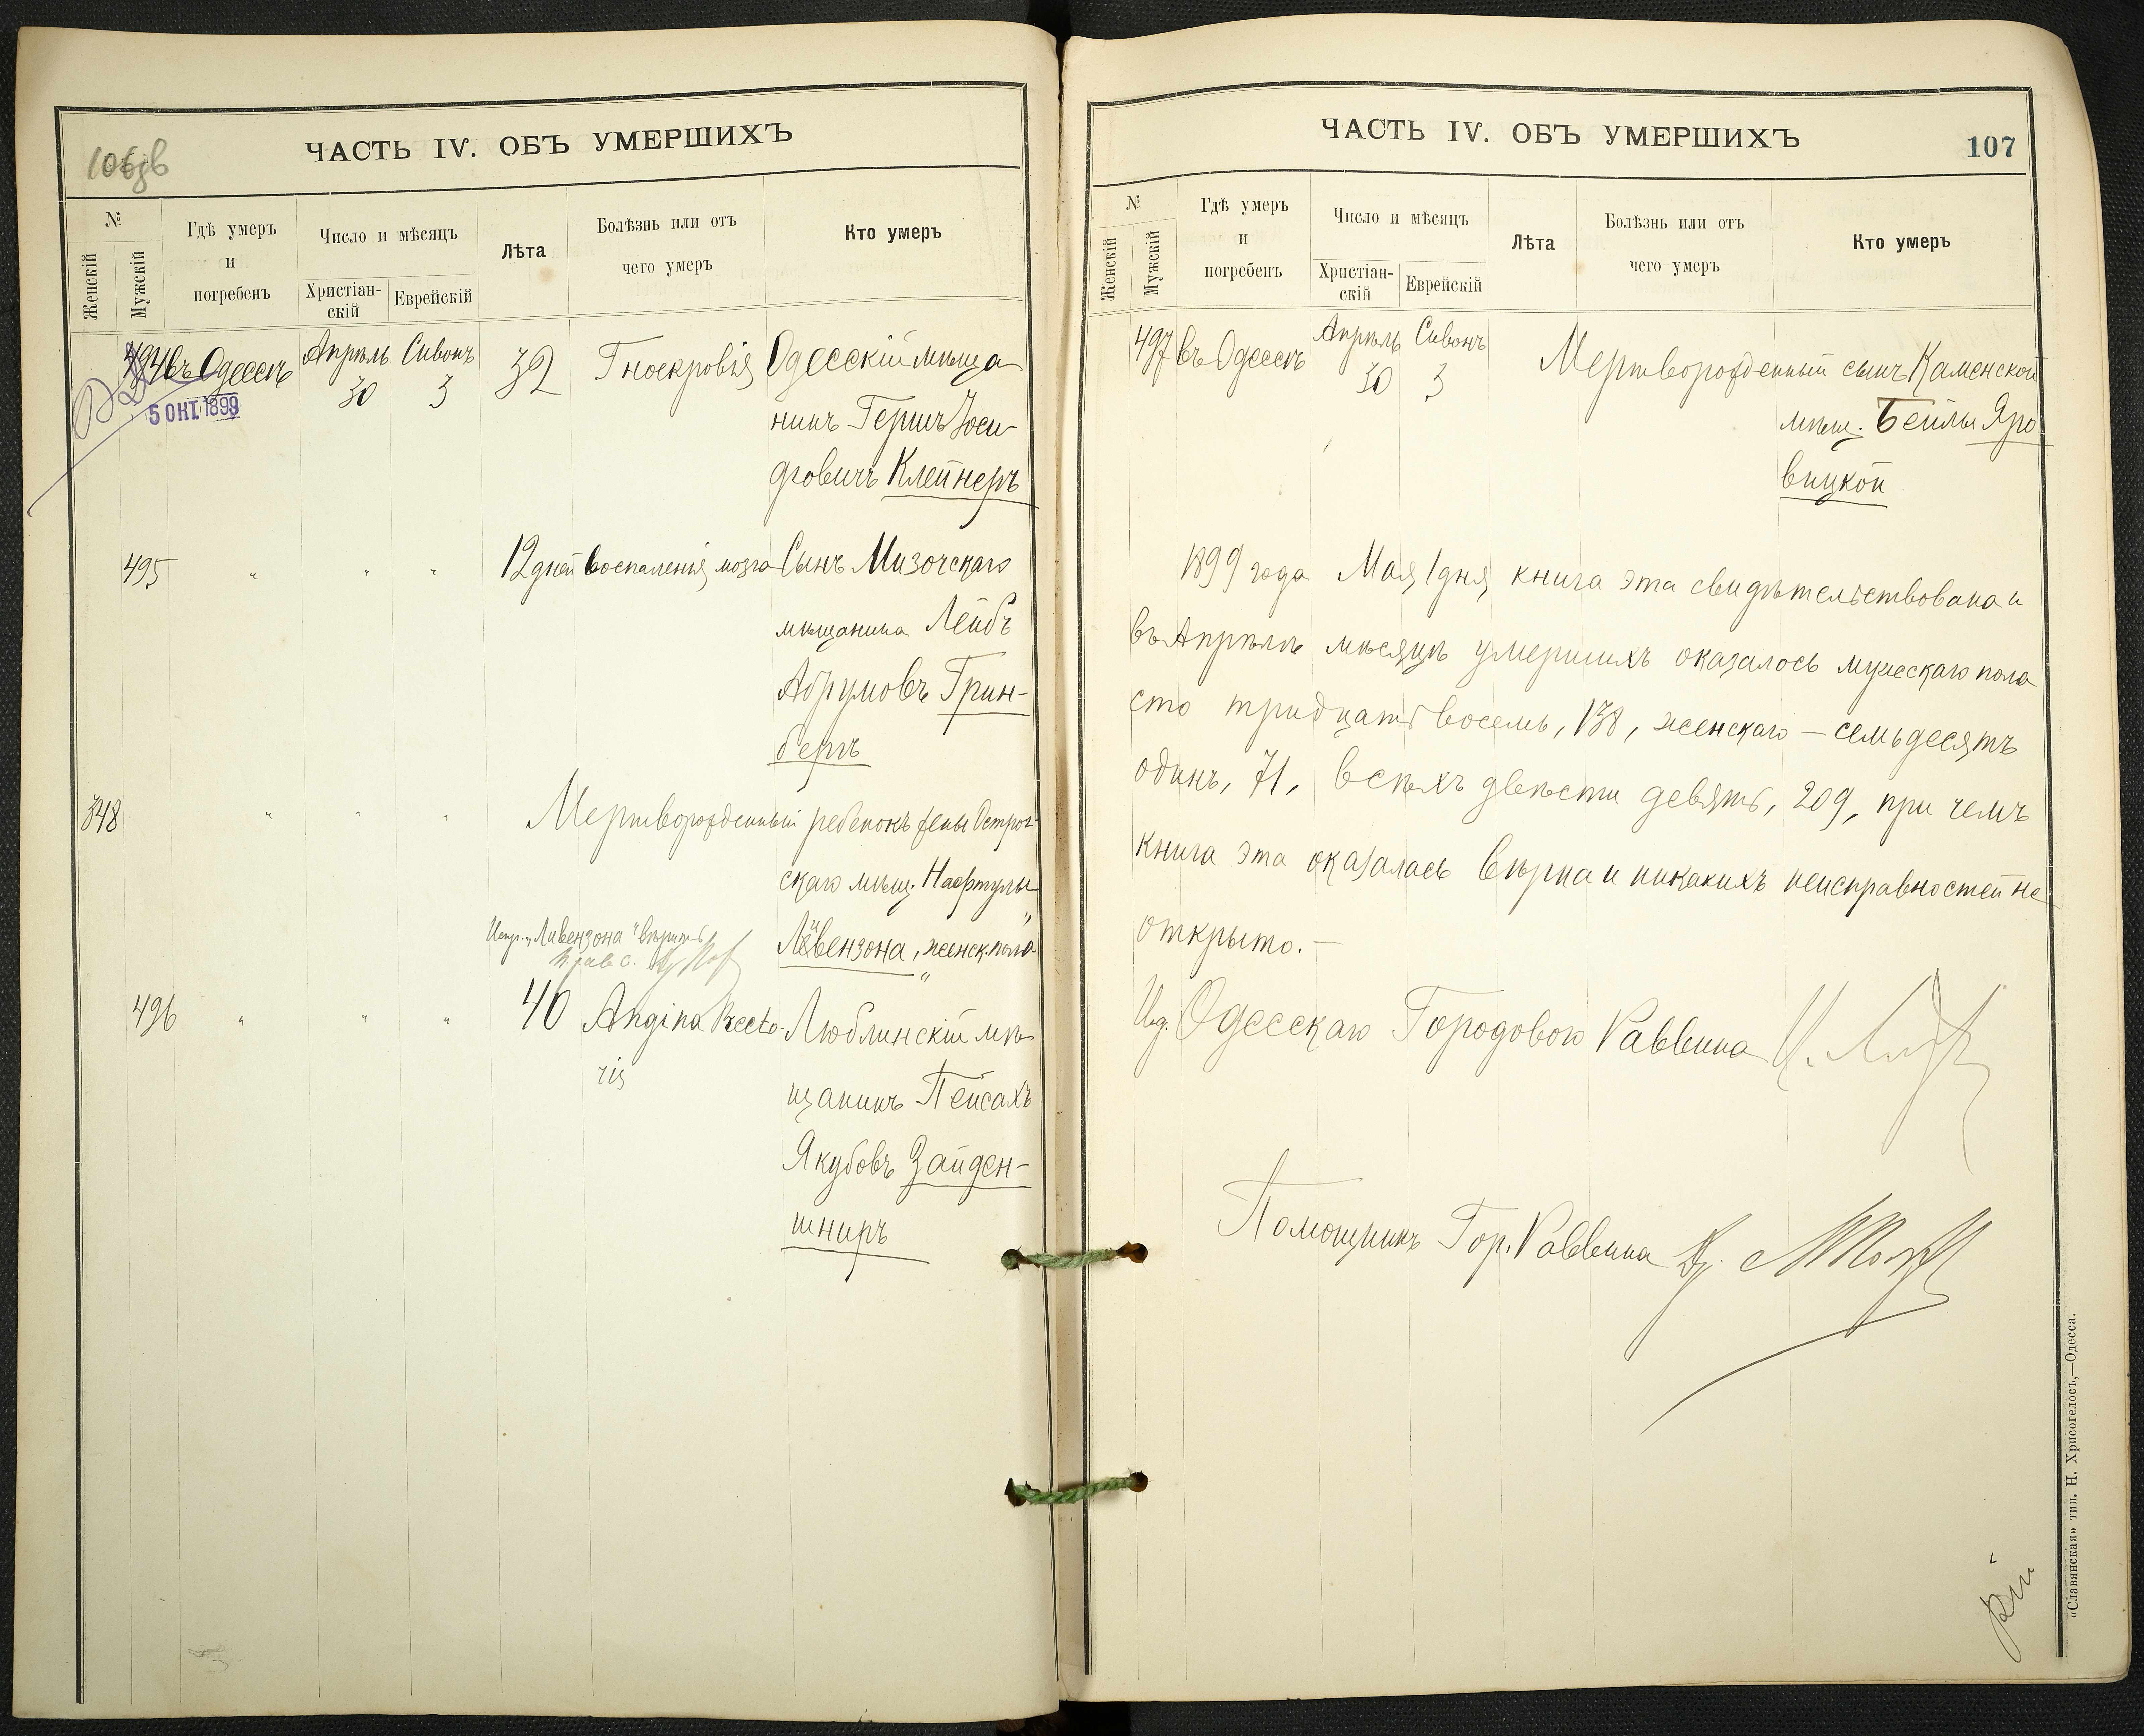 106об
ЧАСТЬ IV. ОБЪ УМЕРШИХЪ
№
Женскій
Мужскій
Гдѣ умеръ
и
погребенъ
Число и мѣсяцъ
Христіан-
скій
Еврейскій
Лѣта
Болѣзнь или отъ
чего умеръ
Кто умеръ
494 въ Одессѣ Апрѣль Сивонъ 32 Гноекровія Одесскій мѣща-
30 3
5 ОКТ. 1899
нинъ Гершъ Іоси-
фовичъ Клейнеръ
495 " " " 12 дней воспаленія мозга Сынъ Мизочскаго
мѣщанина Лейбъ
Абрумовъ Грин-
бергъ
348 " " " Мертворожденный ребенокъ жены Острог-
скаго мѣщ. Нафтулы
Испр. "Ливензона" вѣрить Ливензона, женск. пола
496 " " " 40 Angina Pecto- Люблинскій мѣ-
ris
щанинъ Пейсахъ
Якубовъ Зайден-
шниръ
ЧАСТЬ IV. ОБЪ УМЕРШИХЪ
107
№
Женскій
Мужскій
Гдѣ умеръ
и
погребенъ
Число и мѣсяцъ
Христіан-
скій
Еврейскій
Лѣта
Болѣзнь или отъ
чего умеръ
Кто умеръ
497 въ Одессѣ Апрѣль Сивонъ Мертворожденный сынъ Каменской
30 3
мѣщ. Бейлы Яро
вицкой
1899 года Мая 1 дня, книга эта свидѣтельствована и
въ Апрѣлѣ мѣсяцѣ умершихъ оказалось мужескаго пола
сто тридцать восемь, 138, женскаго — семьдесятъ
одинъ, 71, всѣхъ двѣсти девять, 209, при чемъ
книга эта оказалась вѣрна и никакихъ неисправностей не
открыто. —
И.д. Одесскаго Городового Раввина
Помощникъ Гор. Раввина
«Славянская» тип. Н. Хрисогелосъ,—Одесса.